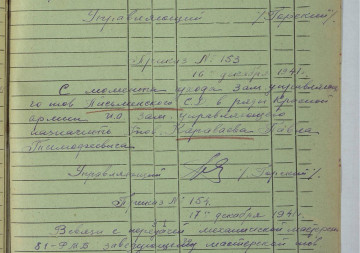 Управляющий /Горский/.
Приказ № 153
16 декабря 1941 г.
С момента ухода зам. управляюще-
го тов Письменского С.Я. в ряды Красной
армии И.О. зам. управляющего
назначаю тов. Караваева Павла
Тимофеевича
Управляющий /Горский/.
Приказ № 154
17 декабря 1941 г.
В связи с передачей механической мастерской
81-ФМБ заведующему мастерской тов